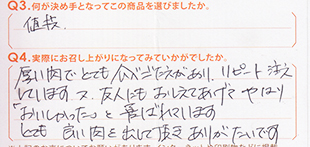 Q3.何が決め手となってこの商品を選びましたか。
値段.
Q4.実際にお召し上がりになってみていかがでしたか。
厚い肉でとても食べごたえがあり、リピート注文
しています。又、友人にもおしえてあげて やはり
「おいしかった」と喜ばれています
とても 良い肉を出して頂き ありがたいです